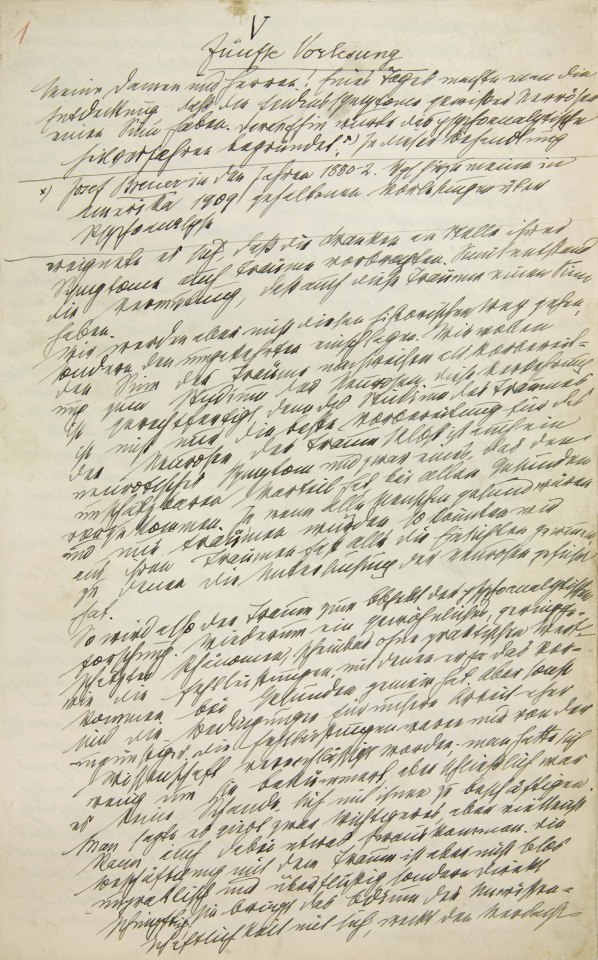 1
V
Fünfte Vorlesung
Meine Damen und Herren! Eines Tages machte man die
Entdeckung daß die Leidenssymptome gewisser Nervöser
einen Sinn haben. Daraufhin wurde das psychoanalytische
Heilverfahren begründet. x) In dieser Behandlung
x) Josef Breuer in den Jahren 1880-2. Vgl. hiezu meine in
Amerika 1909 gehaltenen Vorlesungen über
Psychoanalyse
ereignete es sich, daß die Kranken an Stelle ihrer
Symptome auch Träume vorbrachten. Somit entstand
die Vermutung, daß auch diese Träume einen Sinn
haben.
Wir werden aber nicht diesen historischen Weg gehen,
sondern den umgekehrten einschlagen. Wir wollen
den Sinn der Träume nachweisen als Vorberei-
tung zum Studium der Neurosen. Diese Verkehrung
ist gerechtfertigt, denn das Studium des Traumes
ist nicht nur die beste Vorbereitung für das
der Neurosen, der Traum selbst ist auch ein
neurotisches Symptom und zwar eines, das den
unschätzbaren Vorteil hat bei allen Gesunden
vorzukommen. Ja wenn alle Menschen gesund wären
und nur träumen würden, so könnten wir
aus ihren Träumen fast alle die Einsichten gewinnen,
zu denen die Untersuchung der Neurosen geführt
hat.
So wird also der Traum zum Objekt der psychoanalytischen
Forschung. Wiederum ein gewöhnliches, gering ge-
schätztes Phänomen, scheinbar ohne praktischen Wert
wie die Fehlleistungen, mit denen er ja das Vor-
kommen bei Gesunden gemein hat. Aber sonst
sind die Bedingungen für unsere Arbeit eher
ungünstiger. Die Fehlleistungen waren nur von der
Wissenschaft vernachlässigt worden, man hatte sich
wenig um sie bekümmert, aber schließlich war
es keine Schande sich mit ihnen zu beschäftigen.
Man sagte es giebt zwar Wichtigeres, aber vielleicht
kann auch dabei etwas herauskommen. Die
Beschäftigung mit dem Traum ist aber nicht blos
unpraktisch und überflüssig sondern direkt
schimpflich; sie bringt das Odium der Unwissen-
schaftlichkeit mit sich, weckt den Verdacht